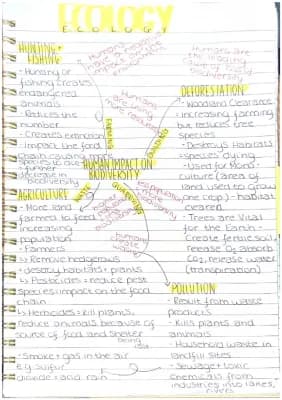 ECOLOGY
ECOLOGY
HUNTING +
FISHING
- Hunting or
fishing creates
endangered
animals
- Reduces the
number
- Creates extinction
- impact the food
chain causing other
species to
decrease in
biodiversity
Humans are
the leading
cause of
biodiversity
Humans
more
more resources
FARMING
BUILDING
DEFORESTATION
- Woodland Clearance
- increasing farming
but reduces tree
species
- Destroys Habitats
- species dying
- Used for Mono-
culture (area of
land used to grow
one crop) - habitat
cleared
- Trees are Vital
for the Earth -
Create fertile soil,
release O2 absorb
CO2, release water
(transpiration)
HUMAN IMPACT ON
BIODIVERSITY
WASTE
QUARRYING
AGRICULTURE
- More land
farmed to feed
increasing
population
- Farmers
↳ Remove hedgerows
- destroy habitats + plants
↳ Pesticides = reduce pest
species impact on the food
chain
↳ Herbicides = kill plants,
reduce animals because of
source of food and shelter
being
- Smoke + gas in the air
e.g. sulfur
dioxide = acid rain
human
waste
POLLUTION
- Result from waste
products
- Kills plants and
animals
- Household waste in
landfill sites
- Sewage + toxic
chemicals from
industries into lakes,
rivers